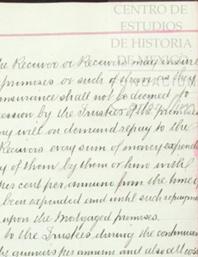 CENTRO DE
ESTUDIOS
DE HISTORIA
DE
he Receiver or Receivers may insure
premises or such of them as they
insurance shall not be deemed to
ession by the Trustees of the premises
ay will on demand repay to the
Receivers every sum of money expended
y of them by them or him with
per cent per annum from the time of
been expended and until such repayment
upon the Mortgaged premises.
to the Trustees during the continuan
per annum and also all costs